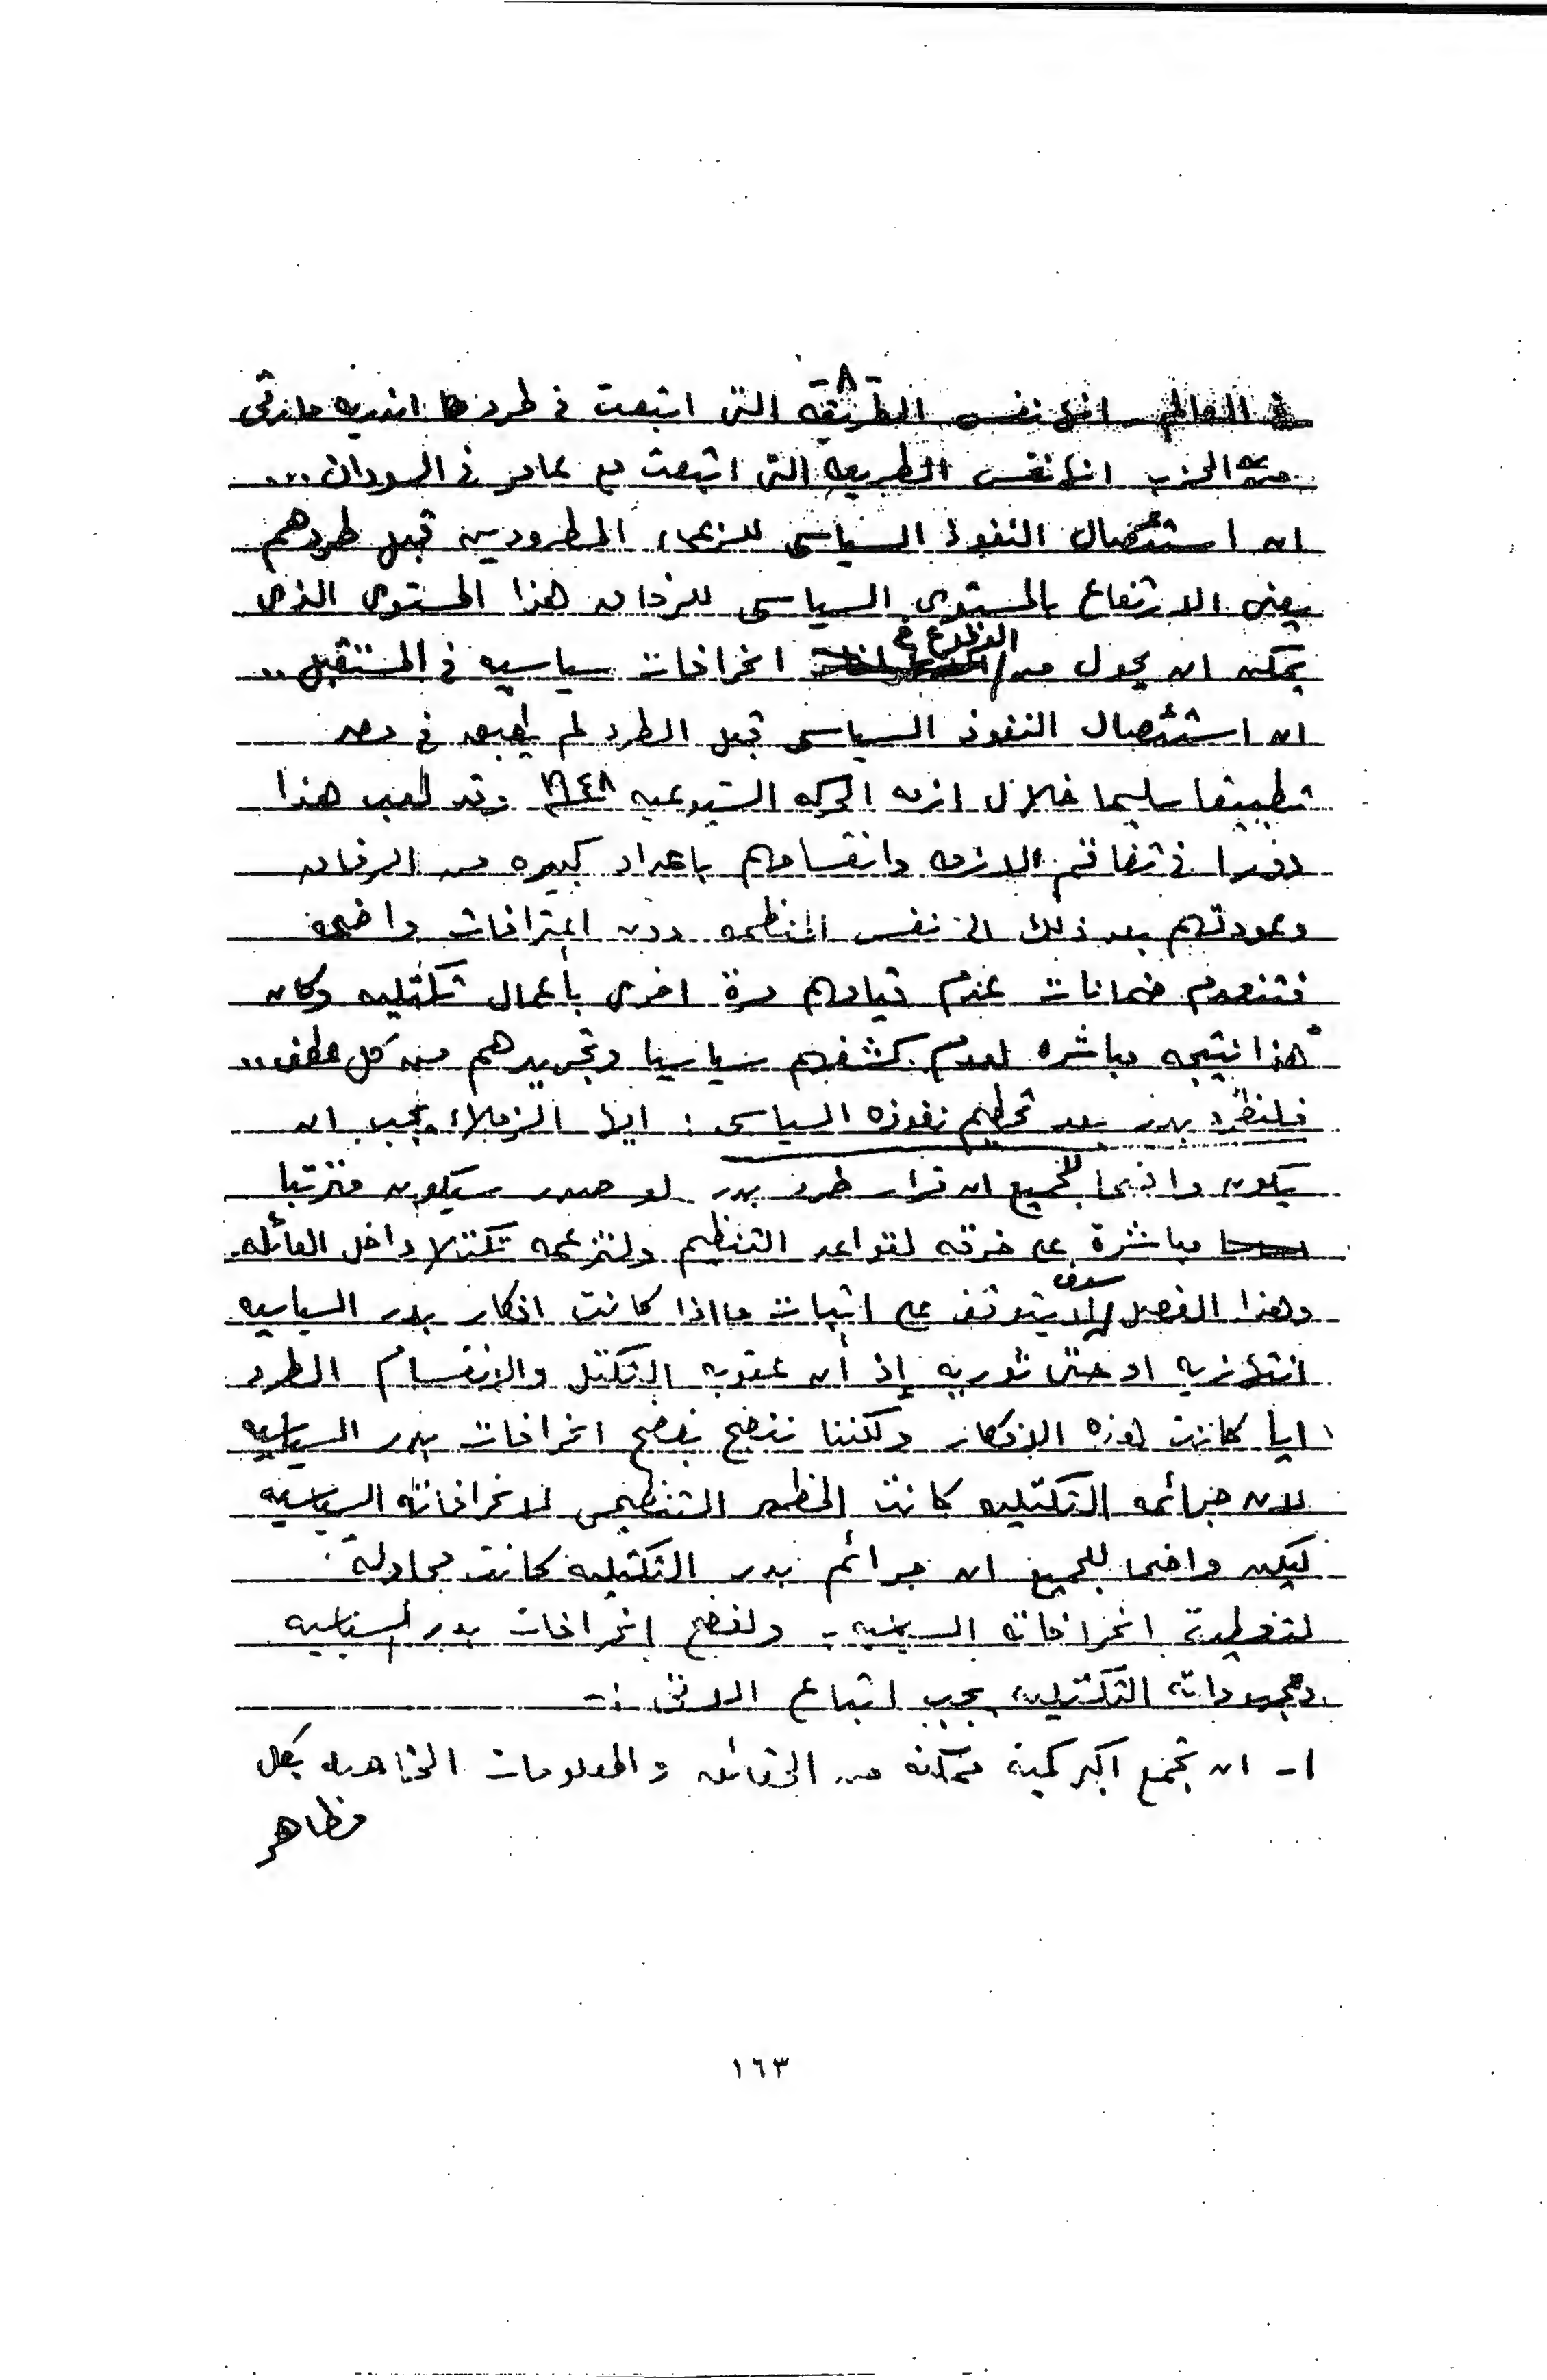 -٨-
فى العالم. انها نفس الطريقه التى اتبعت فى طرد اندريه مارتى
من الحزب انها نفس الطريقه التى اتبعت مع عامر فى السودان...
ان استئصال النفوذ السياسى للزعماء المطرودين قبل طردهم
يعنى الارتفاع بالمستوى السياسى للرفاق هذا المستوى الذى
الوقوع فى
يمكن ان يحول من انحرافات سياسيه فى المستقبل..
ان استئصال النفوذ السياسى قبل الطرد لم يطبق فى مصر
تطبيقا سليما خلال ازمه الحركه الشيوعيه ١٩٤٨ وقد لعب هذا
دورا فى تفاقم الازمه وانقسامهم باعداد كبيره من الرفاق
وعودتهم بعد ذلك الى نفس المنظمه دون اعترافات واضحه
فتنعدم ضمانات عدم قيامهم مرة اخرى بأعمال تكتليه وكان
هذا نتيجه مباشره لعدم كشفهم سياسيا وتجريدهم من كل عطف..
فلنطرد بدر بعد تحطيم نفوذه السياسى: ايها الزملاء يجب ان
يكون واضحا للجميع ان قرار طرد بدر لو صدر سيكون مترتبا
مباشرة على خرقه لقواعد التنظيم ولتزعمه تكتلا داخل العائله.
سوف
وهذا الفصل لا يتوقف على اثبات ما اذا كانت افكار بدر السياسيه
انتهازيه او حتى ثوريه إذ أن عقوبه التكتل والانقسام الطرد
ايا كانت هذه الافكار ولكننا ننصح بفضح انحرافات بدر السياسيه
لان جرائمه التكتليه كانت المظهر التنظيمى لانحرافاته السياسيه
ليكن واضحا للجميع ان جرائم بدر التكتليه كانت محاولة
لتغطية انحرافاته السياسيه - ولفضح انحرافات بدر السياسيه
ومجهوداته التكتليه يجب اتباع الاتى :-
١- ان تجمع اكبر كمية ممكنه من الحقائق والمعلومات الخاصه بكل
مظاهر
١٦٣